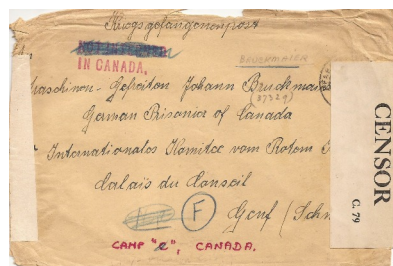 Kriegsgefangenenpost
NOT INTERNED
IN CANADA.
BRUCKMAIER
Maschinen-Gefreiten Johann Bruckmai
(37329)
German Prisonier of Canada
Internationales Komitee vom Roten
Calais du Conseil
F
Genf / Schw
CAMP "e", CANADA.
CENSOR
C. 79